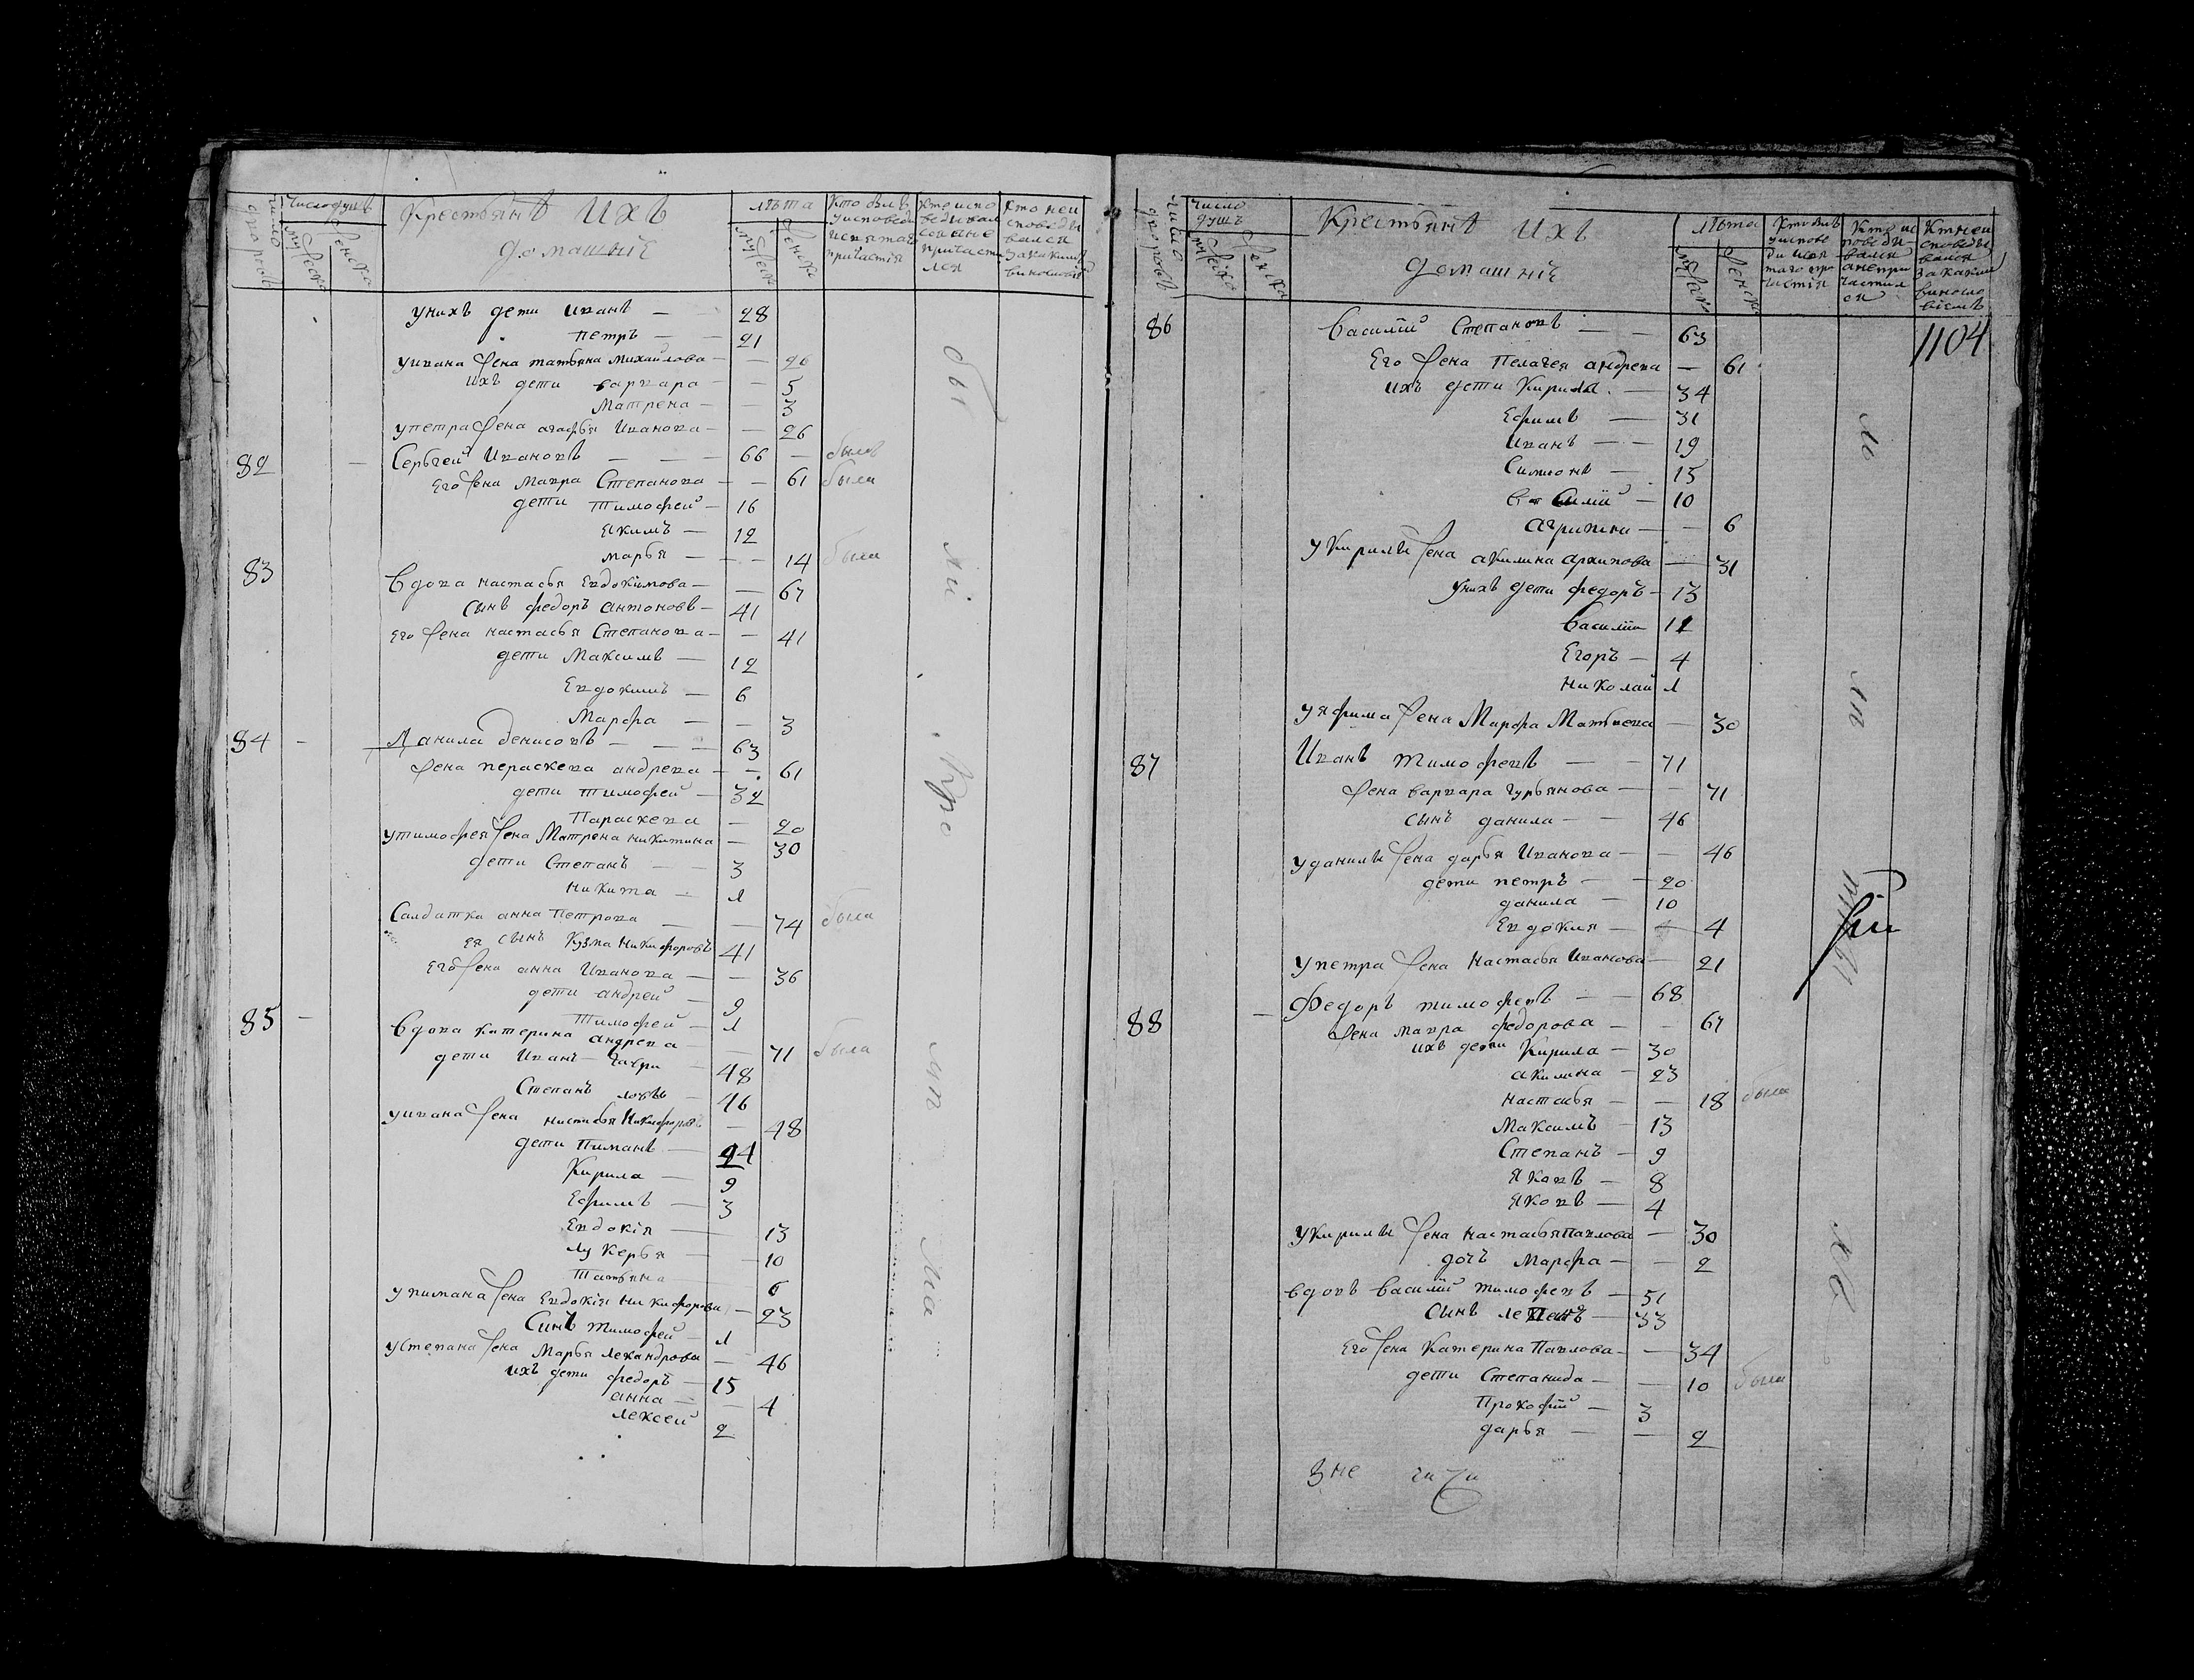 число дворовъ
Число душъ
мужеска
женска
Крестьянъ ихъ
домашныё
лѣта
мужеска
женска
Кто былъ
у исповеди
и святаго
причастія
Кто испо
ведывал
ся а не
причасти
лся
Кто не и
споведы
вался
за какимъ
винословіемъ
у нихъ дети иванъ — 28
петръ — 21
у ивана жена татьяна михайлова — — 26
ихъ дети варвара — — 5
Матрена — — 3
у петра жена агафья Иванова — — 26
82 Сергей Ивановъ — — — 66 — былъ
Его жена мавра Степанова — — 61 была
дети тимофей — 16
якимъ — 12
марья — — 14 была
83 вдова настасья Евдокимова — — 67
сынъ федоръ антоновъ — 41
его жена настасья Степанова — — 41
дети Максимъ — 12
Евдокимъ — 6
Марфа — — 3
84 — Данила денисовъ — — — 63
жена пераскева андрева — — 61
дети тимофей — 32
Параскева — 20
у тимофея жена Матрена никитина — 30
дети Степанъ — — 3
никита — 1
Салдатка анна Петрова — — 74 была
ея сынъ Кузма никифоровъ 41
Его жена анна Иванова — — 36
дети андрей — 9
тимофей — 1
85 — вдова катерина андрева — — 71 была
дети иванъ — 48
Степанъ — 46
у ивана жена настасья Никифорова — 48
дети Пиманъ — 24
Кирила — 9
Ефимъ — 3
Евдокія — 13
лукерья — — 10
татьяна — 6
у пимана жена Евдокія никифорова — 23
Синъ тимофей — 1
у степана жена Марья лександрова — 46
ихъ дети федоръ — 15
анна — — 4
лексей 2
число дворовъ
Число
душъ
мужеска
женска
Крестьянъ ихъ
домашніё
лѣта
мужеска
женска
Кто былъ
у испове
ди и свя
таго при
частія
Кто ис
поведы
вался
а не при
частил
ся
Кто не и
споведы
вался
за какимъ
винослo
віемъ
1104
86 Василій Степановъ — — 63
Его жена Пелагея андрева — 61
ихъ дети Кирила — 34
Ефимъ — 31
иванъ — — 19
Симионъ — 15
василій — 10
агрипина — — 6
у Кирилы жена акилина архипова — 31
у нихъ дети федоръ — 13
василій 11
Егоръ — 4
николай 1
у яфима жена Марфа Матвиева — 30
87 Иванъ тимофевъ — — 71
жена варвара гурьянова — — 71
сынъ данила — — 46
у данилы жена дарья Иванова — — 46
дети петръ — — 20
данила — 10
Евдокия — 4
у петра жена настасья ивановa — 21
88 — Федоръ тимофевъ — — 68
жена мавра федорова — — 67
ихъ дети Кирила — 30
акилина — 23
настасья — — 18 была
Максимъ — 13
Степанъ — 9
яковъ — 8
яковъ — 4
у кирилы жена настасья павлова — 30
дочъ Марфа — — 2
вдовъ василій тимофевъ — 51
сынъ — 33
Его жена Катерина Павлова — — 34
дети Степанида — — 10 была
Прокофій — 3
дарья — — 2